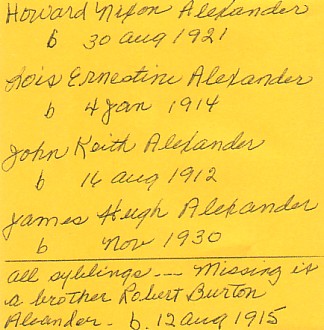 Howard Nixon Alexander
b 30 Aug 1921
Lois Ernestine Alexander
b 4 Jan 1914
John Keith Alexander
b 16 Aug 1912
James Hugh Alexander
b Nov 1930
all syblings --- Missing is
a brother Robert Burton
Alexander - b. 12 Aug 1915